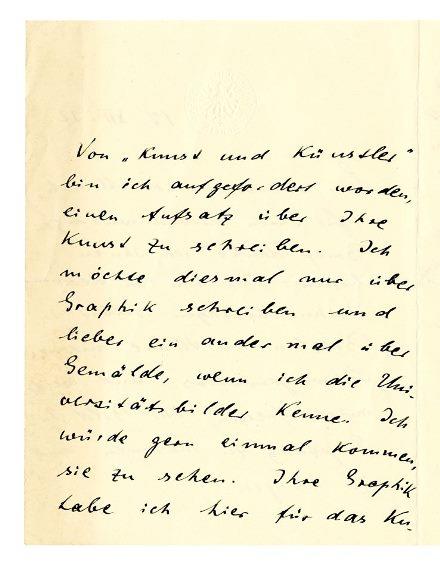 Von „Kunst und Künstler"
bin ich aufgefordert worden,
einen Aufsatz über Ihre
Kunst zu schreiben. Ich
möchte diesmal nur über
Graphik schreiben und
lieber ein ander mal über
Gemälde, wenn ich die Uni-
versitätsbilder kenne. Ich
würde gern einmal kommen,
sie zu sehen. Ihre Graphik
habe ich hier für das Ku-